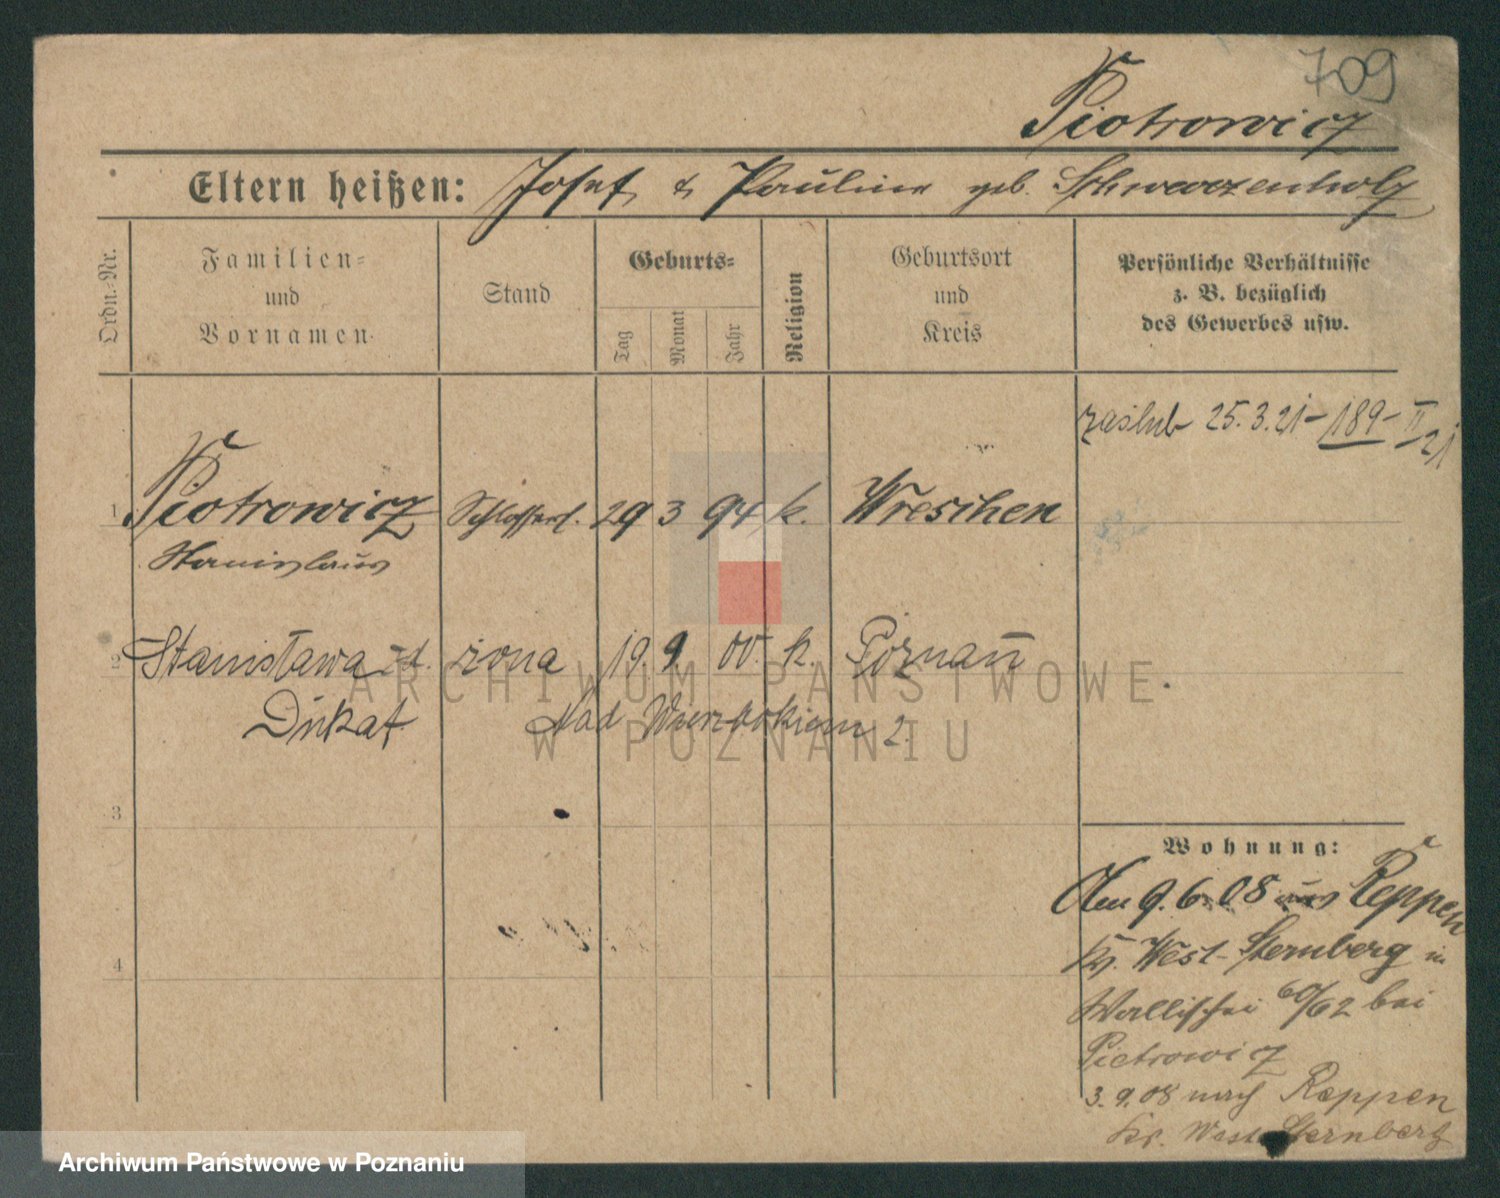 709
Piotrowicz
Eltern heißen: Josef & Pauline geb. Schwarzenholz
Ordn.-Nr.
Familien- und Vornamen
Stand
Geburts-
Tag
Monat
Jahr
Religion
Geburtsort und Kreis
Persönliche Verhältnisse
z. B. bezüglich
des Gewerbes usw.
zaślub 25.3.21 - 189 - II 21
1 Piotrowicz Schlosserl. 29 3 94 k. Wreschen
Stanislaus
2 Stanisława zd. żona 19 9 00 k. Poznań
Dukat Nad Wierzbakiem 2.
3
4
Wohnung:
Am 9.6.08 aus Reppen
Kr. West-Sternberg in
Wallischei 60/62 bei
Piotrowicz
3.9.08 nach Reppen
Kr. West Sternberg
ARCHIWUM PAŃSTWOWE
W POZNANIU
Archiwum Państwowe w Poznaniu